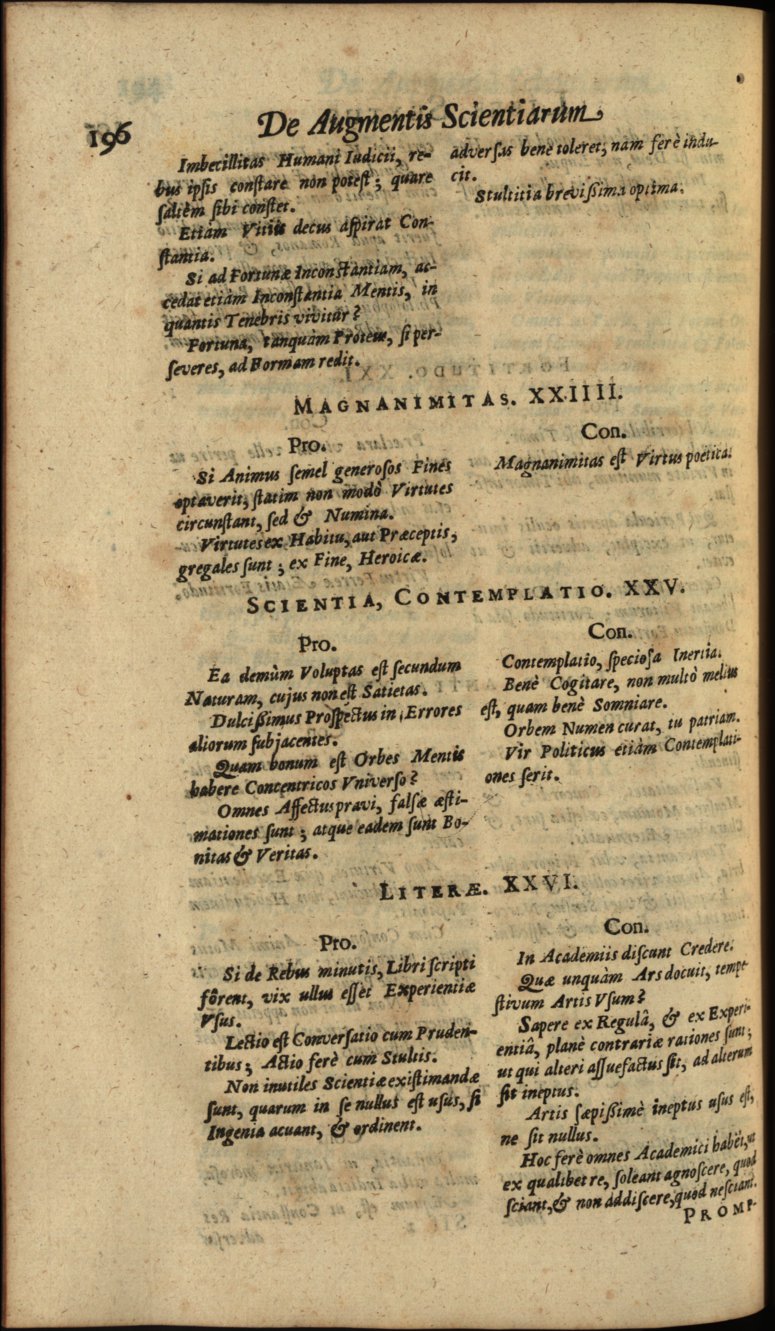 196
De Augmentis Scientiarum
Imbecillitas Humani Iudicii, re-
bus ipsis constare non potest; quare
saltèm sibi constet.
Etiàm Vitiis decus aspirat Con-
stantia.
Si ad Fortunæ Inconstantiam, ac-
cedat etiàm Inconstantia Mentis, in
quantis Tenebris vivitur?
Fortuna, tanquàm Proteus, si per-
severes, ad Formam redit.
adversas benè toleret; nàm ferè indu-
cit.
Stultitia brevissima optima.
MAGNANIMITAS. XXIIII.
Pro.
Si Animus semel generosos Fines
optaverit, statim non modò Virtutes
circunstant, sed & Numina.
Virtutes ex Habitu, aut Præceptis,
gregales sunt; ex Fine, Heroicæ.
Con.
Magnanimitas est Virtus poëtica.
SCIENTIA, CONTEMPLATIO. XXV.
Pro.
Ea demùm Voluptas est secundum
Naturam, cujus non est Satietas.
Dulcissimus Prospectus in Errores
aliorum subjacentes.
Quam bonum est Orbes Mentis
habere Concentricos Vniverso?
Omnes Affectus pravi, falsæ æsti-
mationes sunt; atque eadem sunt Bo-
nitas & Veritas.
Con.
Contemplatio, speciosa Inertia.
Benè Cogitare, non multò melius
est, quam benè Somniare.
Orbem Numen curat, tu patriam.
Vir Politicus etiàm Contemplati-
ones serit.
LITERÆ. XXVI.
Pro.
Si de Rebus minutis, Libri scripti
fôrent, vix ullus esset Experientiæ
Vsus.
Lectio est Conversatio cum Pruden-
tibus; Actio ferè cum Stultis.
Non inutiles Scientiæ existimandæ
sunt, quarum in se nullus est usus, si
Ingenia acuant, & ordinent.
Con.
In Academiis discunt Credere.
Quæ unquàm Ars docuit, tempe-
stivum Artis Vsum?
Sapere ex Regulâ, & ex Experi-
entiâ, planè contrariæ rationes sunt;
ut qui alteri assuefactus sit, ad alterum
sit ineptus.
Artis sæpissimè ineptus usus est,
ne sit nullus.
Hoc ferè omnes Academici habêt, ut
ex quâlibet re, soleant agnoscere, quod
sciant, & non addiscere, quod nesciant.
PROMP-